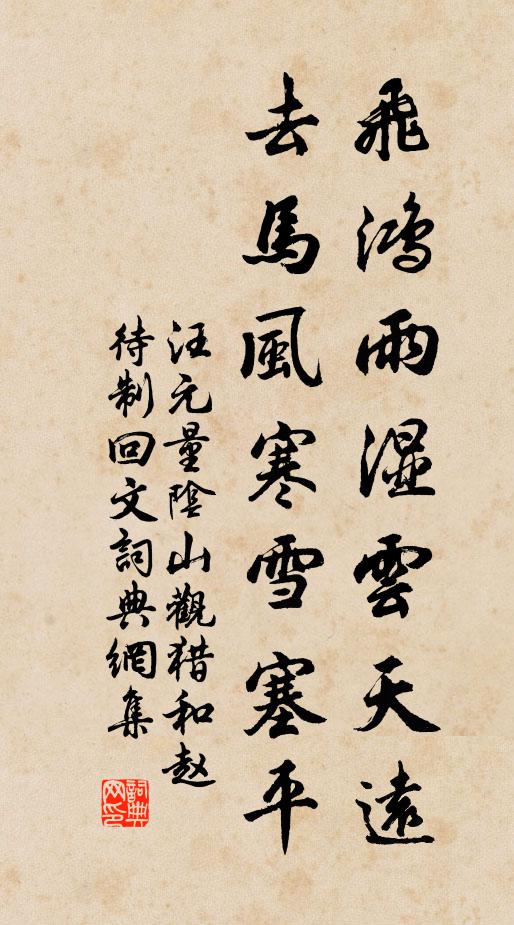 飛鴻雨湿雲天遠
去馬風寒雪塞平
汪元量陰山觀猎和赵
待制回文詞典網集
詞典网印